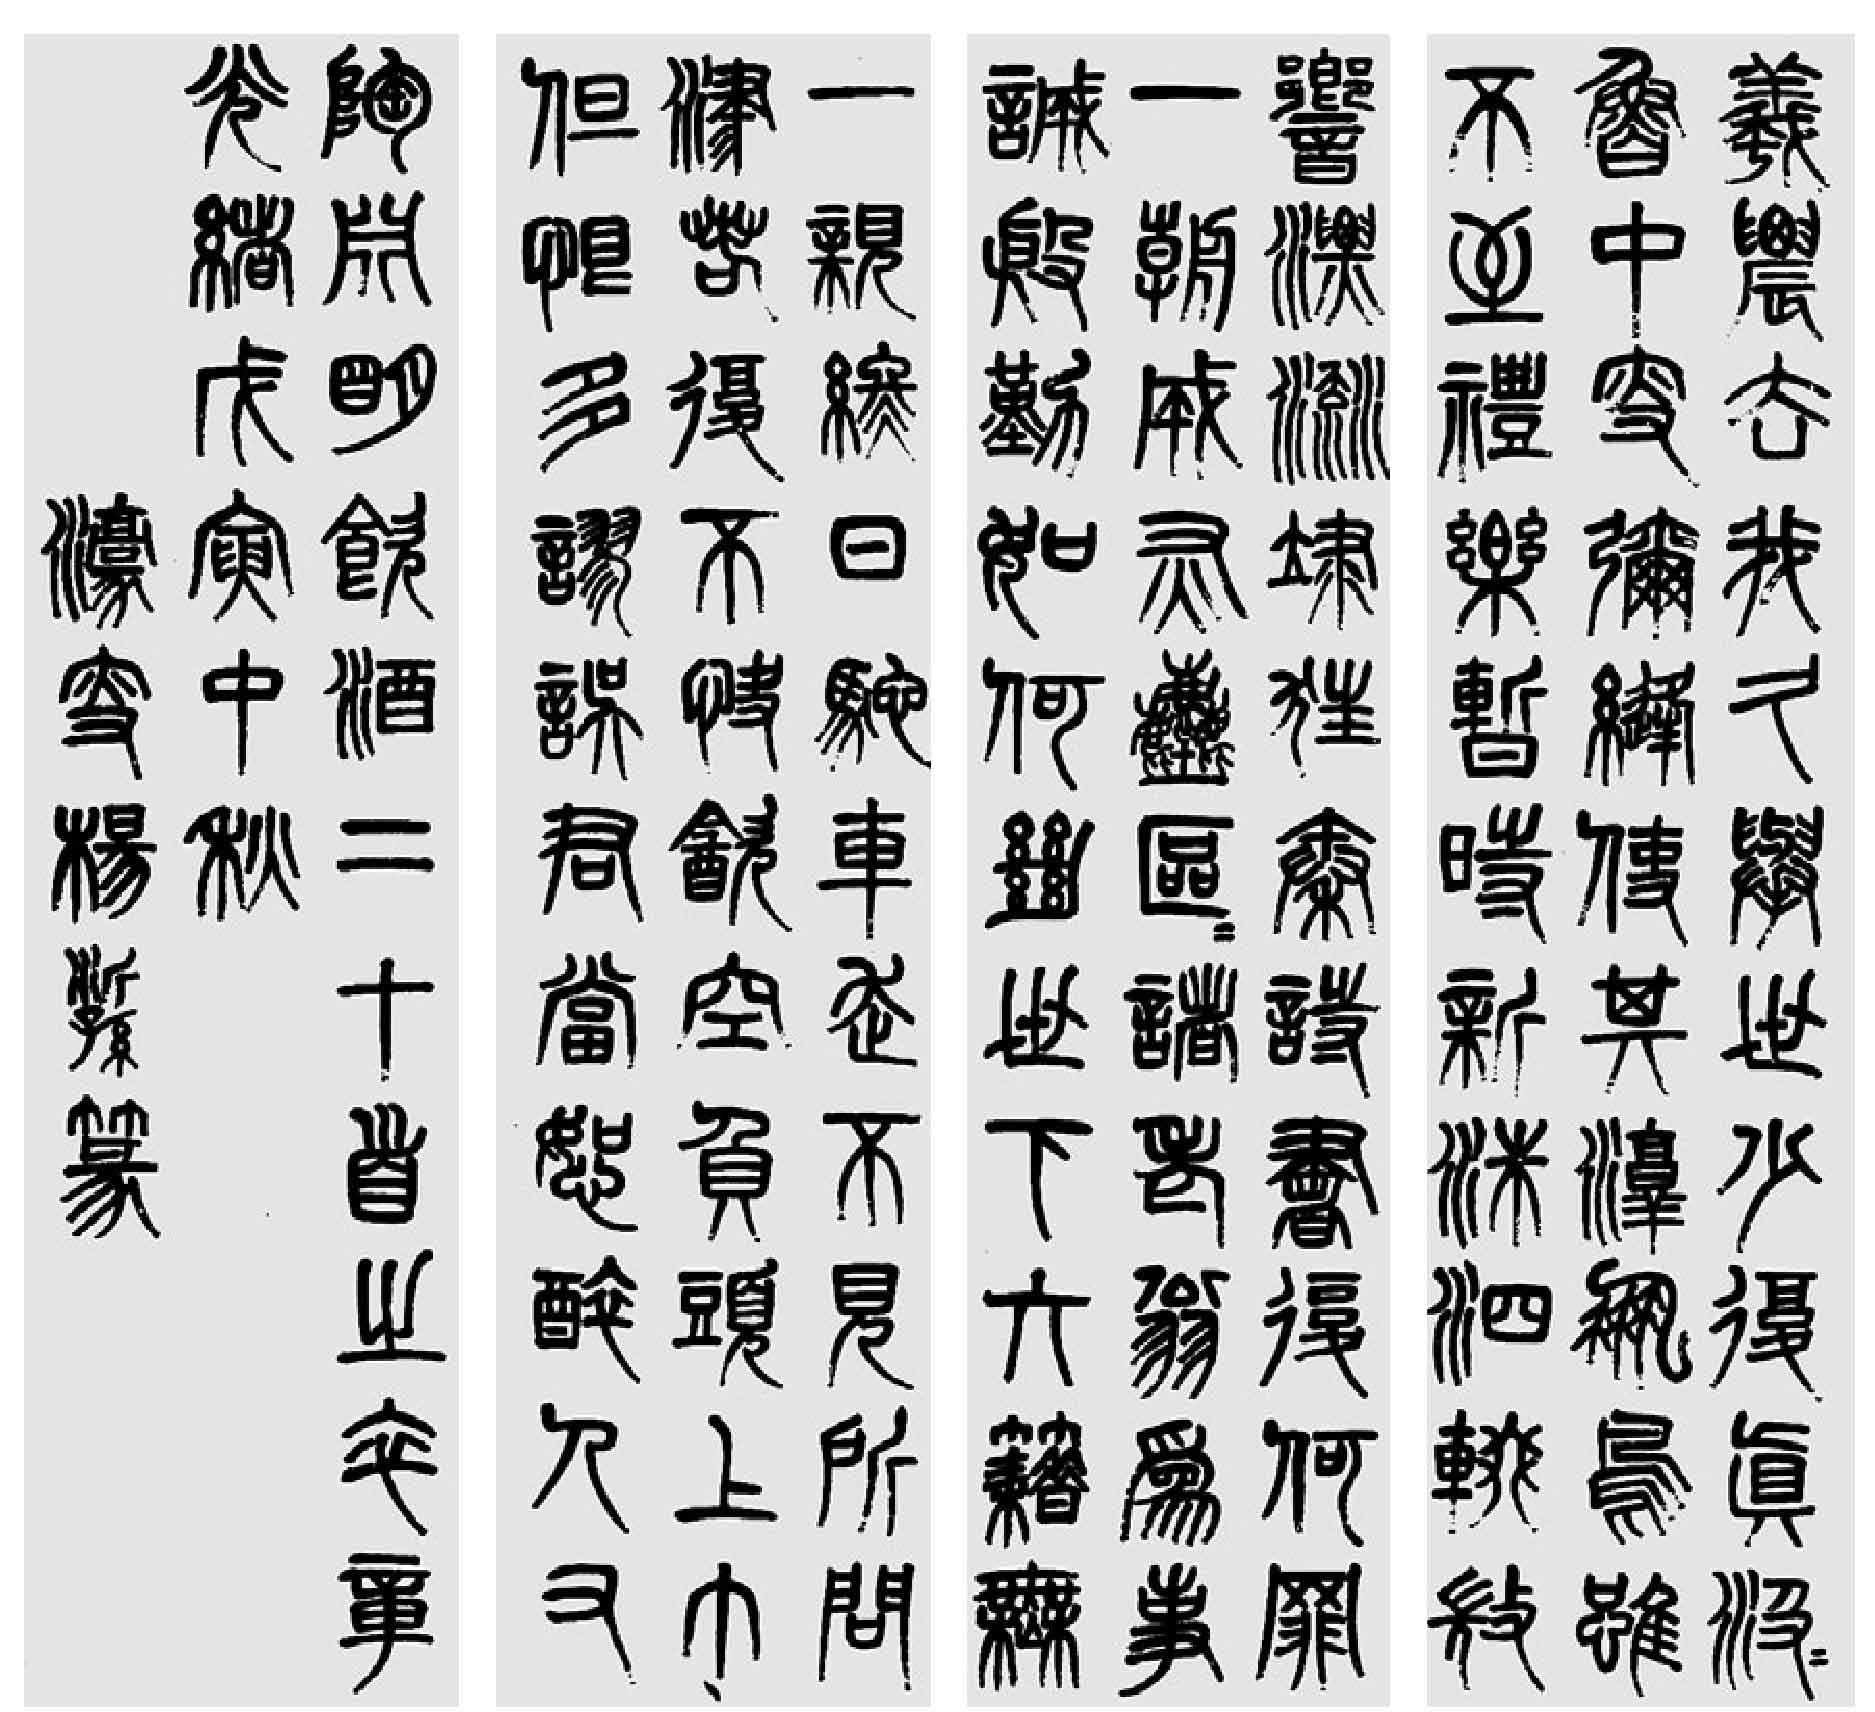 羲農去我久舉世少復真汲〻
魯中叟彌縫使其淳鳳鳥雖
不至禮樂暫時新洙泗輟微
響漂流逮狂秦詩書復何罪
一朝成灰塵區〻諸老翁為事
誠殷勤如何絕世下六籍無
一親終日馳車走不見所問
津若復不快飲空負頭上巾
但恨多謬誤君當恕醉人又
陶淵明飲酒二十首之卒章
光緒戊寅中秋
濠叟楊沂孫篆